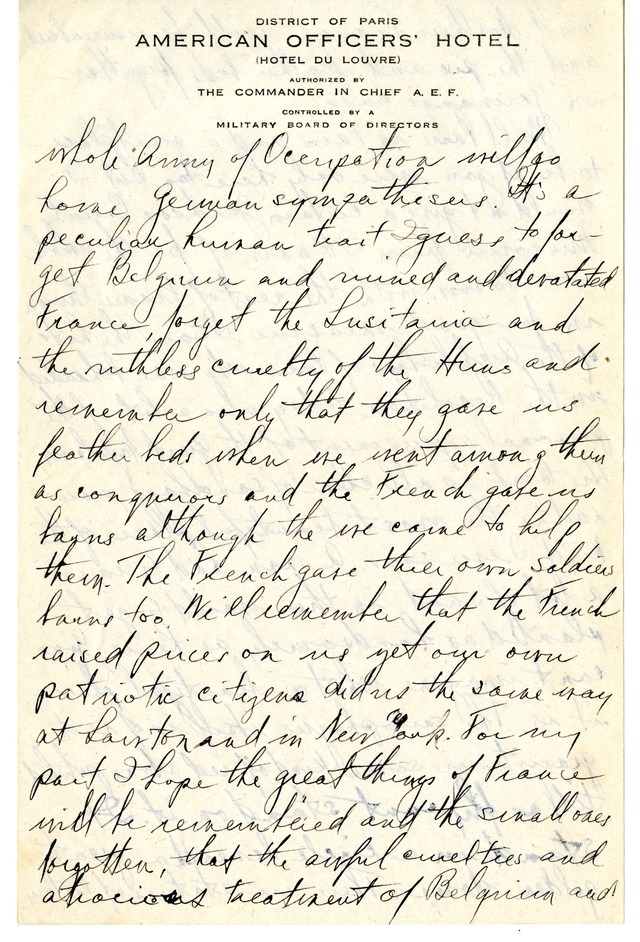 DISTRICT OF PARIS
AMERICAN OFFICERS' HOTEL
(HOTEL DU LOUVRE)
AUTHORIZED BY
THE COMMANDER IN CHIEF A. E. F.
CONTROLLED BY A
MILITARY BOARD OF DIRECTORS
whole Army of Occupation will go
home German sympathesers. It's a
peculiar human trait I guess to for-
get Belgium and ruined and devatated
France, forget the Lusitania and
the ruthless cruelty of the Huns and
remember only that they gave us
feather beds when we went among them
as conquerors and the French gave us
barns although the we came to help
them. The French gave their own soldiers
barns too. We'll remember that the French
raised prices on us yet our own
patriotic citizens did us the same way
at Lawton and in New York. For my
part I hope the great things of France
will be remembered and the small ones
forgotten, that the awful cruelties and
atrocious treatment of Belgium and